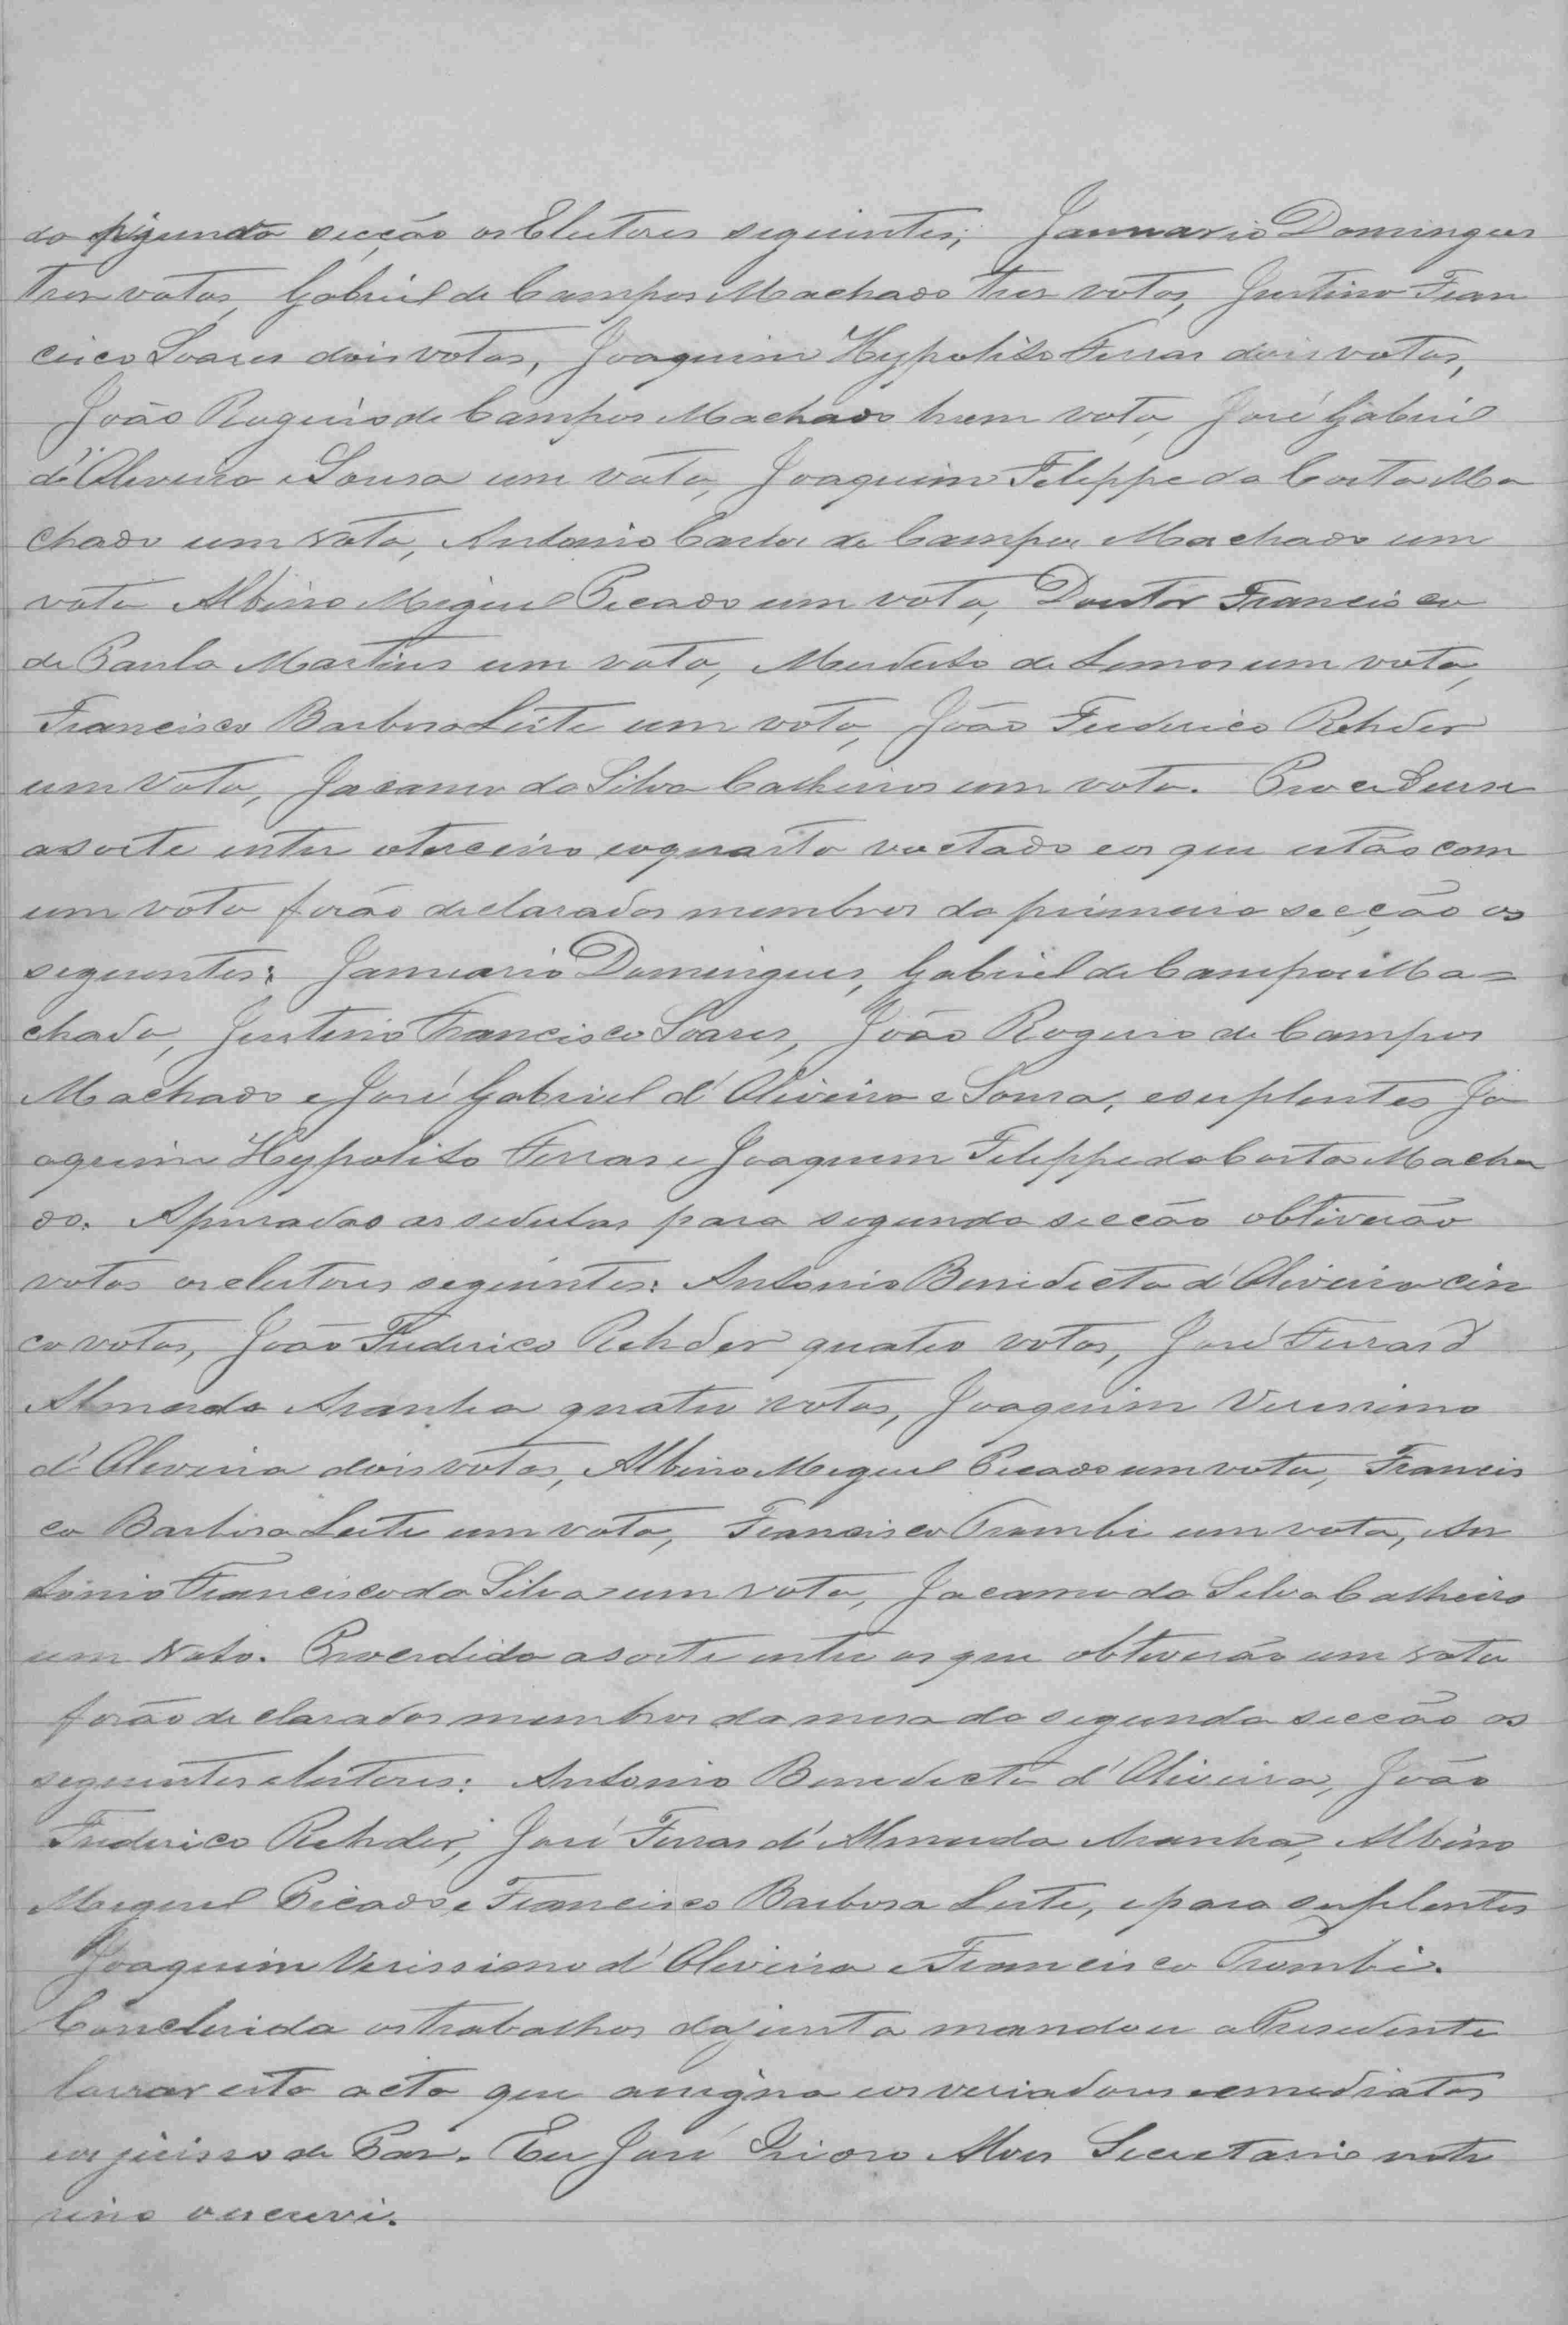 da segunda secção os Eleitores seguintes; Januario Domingues
tres votos, Gabriel de Campos Machado tres votos, Justino Fran
cisco Soares dois votos, Joaquim Hypolito Ferras dois votos,
João Rogerio de Campos Machado hum voto, José Gabriel
d'Oliveira e Sousa um voto, Joaquim Felippe da Costa Ma
chado um voto, Antonio Carlos de Campos Machado um
voto Albino Miguel Picado um voto, Doutor Francisco
de Paula Martins um voto, de Lemos um voto,
Francisco Barbosa Leite um voto, João Frederico Rehder
um voto, Jacomo da Silva Calheiros um voto. Procedeu se
a sorte entre o terceiro e o quarto voctado e os que estão com
um voto forão declarados membros da primeira secção os
seguentes: Januario Domingues, Gabriel de Campos Ma=
chado, Justino Francisco Soares, João Rogerio de Campos
Machado e José Gabriel d'Oliveira e Sousa, e suplentes Jo
aquim Hypolito Ferras e Joaquim Felippe da Costa Macha
do. Apuradas as sedulas para segunda secção obtiverão
votos os eleitores seguintes: Antonio Benidicto d'Oliveira cin
co votos, João Frederico Rehder quatro votos, José Ferras d'
Almeida Aranha quatro votos, Joaquim Verissimo
d'Oliveira dois votos, Albino Miguel Picado um voto, Francis
co Barbosa Leite um voto, Francisco Trombi um voto, An
tonio Francisco da Silva um voto, Jacomo da Silva Calheiro
um voto. Procedida a sorte entre os que obtiverão um voto
forão declarados membros da mesa da segunda secção os
seguintes eleitores: Antonio Benedicto d'Oliveira, João
Frederico Rehder, José Ferras d'Almeida Aranha, Albino
Miguel Picado e Francisco Barbosa Leite, e para suplentes
Joaquim Verissimo d'Oliveira e Francisco Trombi.
Concluida os trabalhos da junta mandou o Presidente
lavrar esta acta que asigna e os veriadores e emediatos
e os juises de Paz. Eu José Izidro Alves Secretario inte
rino o escrevi.